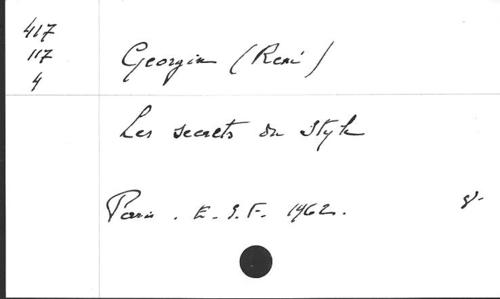 417
117
4
Georgin (René)
Les secrets du style
Paris. E.S.F. 1962. 8°